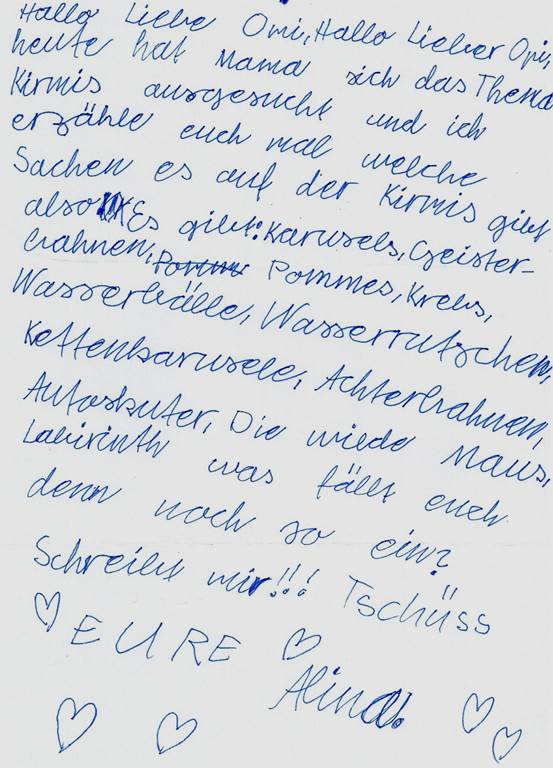 Hallo Liebe Omi, Hallo Lieber Opi,
heute hat Mama sich das Thema
Kirmis ausgesucht und ich
erzähle euch mal welche
Sachen es auf der Kirmis gibt
also Es gibt: Karusels, Geister-
bahnen, Pommes, Krebs,
Wasserbälle, Wasserrutschen,
Kettenkarusele, Achterbahnen,
Autoskuter, Die wiede Maus,
Labirinth was fällt euch
denn noch so ein?
Schreibt mir!!! Tschüss
EURE
Alina.